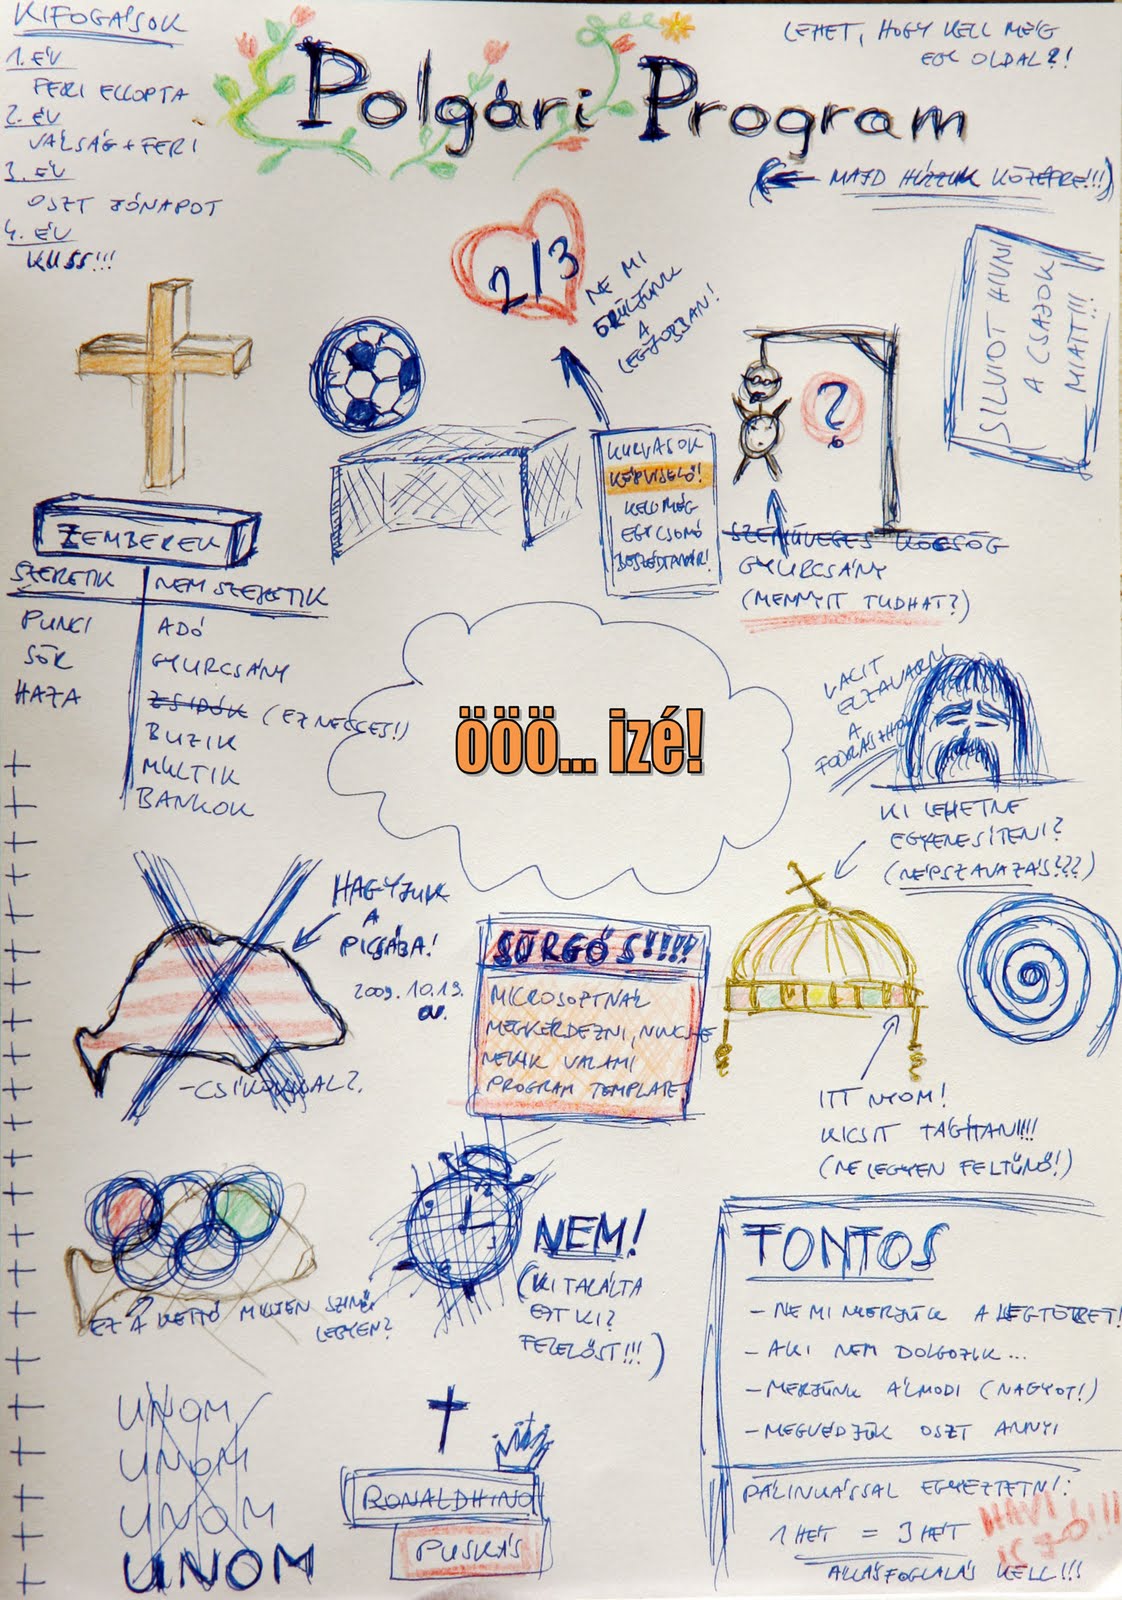 KIFOGÁSOK
1. ÉV
FERI ELLOPTA
2. ÉV
VÁLSÁG + FERI
3. ÉV
OSZT JÓNAPOT
4. ÉV
KUSS!!!
Polgári Program
LEHET, HOGY KELL MÉG
EGY OLDAL?!
MAJD HÚZZUK KÖZÉPRE!!!
2/3
NE MI
ÖRÜLJÜNK
A
LEGJOBBAN!
SILVIOT HIVNI
A CSAJOK
MIATT!!!
KURVASOK
KÉPVISELŐ!
KELL MÉG
EGY CSOMÓ
BESZÉDTANÁR!
?
SZEMÜVEGES KÖCSÖG
GYURCSÁNY
(MENNYIT TUDHAT?)
ZEMBEREK
SZERETIK
NEM SZERETIK
PUNCI
SÖR
HAZA
ADÓ
GYURCSÁNY
ZSIDÓK (EZ NECCES!)
BUZIK
MULTIK
BANKOK
ööö... izé!
LACIT
ELZAVARNI
A
FODRÁSZHOZ
KI LEHETNE
EGYENESÍTENI?
(NÉPSZAVAZÁS???)
HAGYJUK
A
PICSÁBA!
2009.10.19.
-CSÍKOKKAL?
SÜRGŐS!!!!
MICROSOFTNÁL
MEGKÉRDEZNI, NINCS-E
NEKIK VALAMI
PROGRAM TEMPLATE
ITT NYOM!
KICSIT TÁGÍTANI!!!!
(NE LEGYEN FELTŰNŐ!)
EZ A KETTŐ MILYEN SZINŰ
LEGYEN?
NEM!
(KI TALÁLTA
EZT KI?
FELELŐST!!!)
FONTOS
- NE MI MERJÜK A LEGTÖBBET!
- AKI NEM DOLGOZIK...
- MERJÜNK ÁLMODI (NAGYOT!)
- MEGVÉDJÜK OSZT ANNYI
PÁLINKÁSSAL EGYEZTETNI:
1 HÉT = 3 HÉT
HAVI
IS JÓ!!!
ÁLLÁSFOGLALÁS KELL!!!
UNOM
UNOM
UNOM
UNOM
RONALDHINO
PUSKÁS